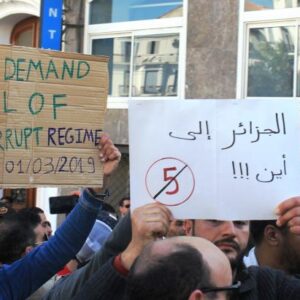 DEMAND
L OF
RRUPT REGIME
01/03/2019
الجزائر إلى
أين !!!
5